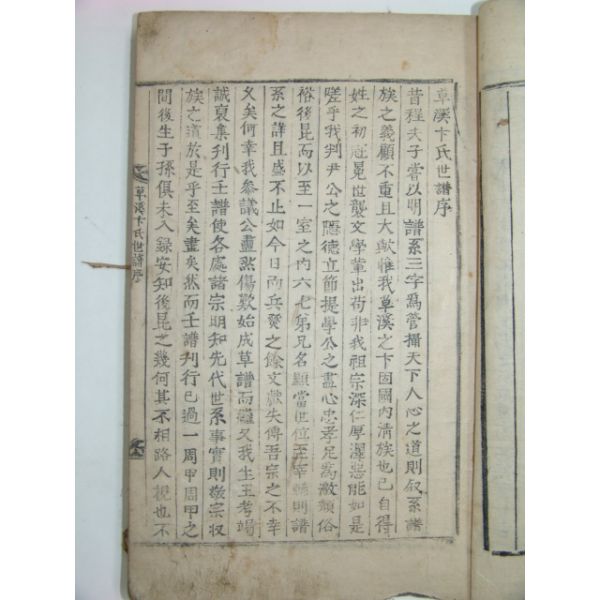 草溪卞氏世譜序
昔程夫子嘗以明譜系三字爲管攝天下人心之道則叙系譜
族之義顧不重且大歟惟我草溪之卞固國內淸族也已自得
姓之初冠冕世襲文學軰出苟非我祖宗深仁厚澤惡能如是
嗟乎我判尹公之隱德立節提學公之盡心忠孝足爲激頹俗
裕後昆而以至一室之內六七弟兄名顯當世位至宰輔則譜
系之詳且盛不止如今日而兵燹之餘文獻失傳吾宗之不幸
久矣何幸我叅議公盡然傷歎始成草譜而繼又我生王考竭
誠裒集刊行壬譜使各處諸宗明知先代世系事實則敬宗収
族之道於是乎至矣盡矣然而壬譜刊行已過一周甲周甲之
間後生子孫俱未入錄安知後昆之幾何其不相路人視也不
草溪卞氏世譜序